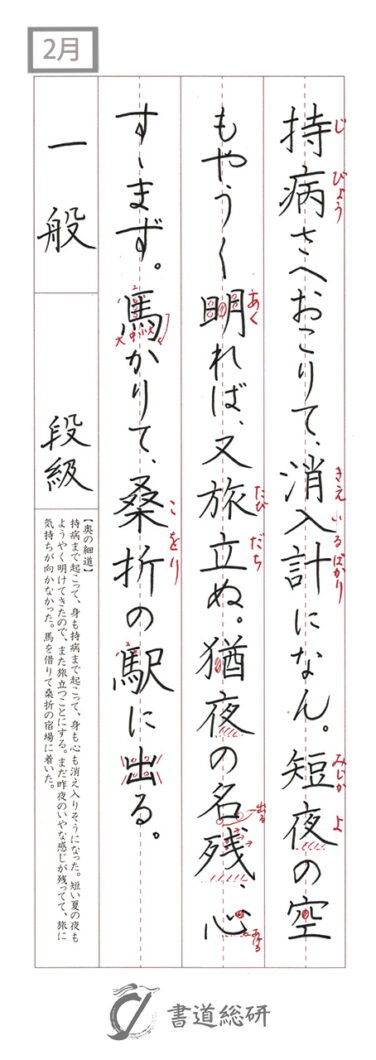 2月
持病さへおこりて、消入計になん。短夜の空
じ びょう きえ いる ばかり みじか よ
もやう〱明れば、又旅立ぬ。猶夜の名残、心
あく たび だち 出る ある
すゝまず。馬かりて、桑折の駅に出る。
大 中 小 こ をり
一般 段級
【奥の細道】
持病まで起こって、身も持病まで起こって、身も心も消え入りそうになった。短い夏の夜も
ようやく明けてきたので、また旅立つことにする。まだ昨夜のいやな感じが残ってて、旅に
気持ちが向かなかった。馬を借りて桑折の宿場に着いた。
書道総研